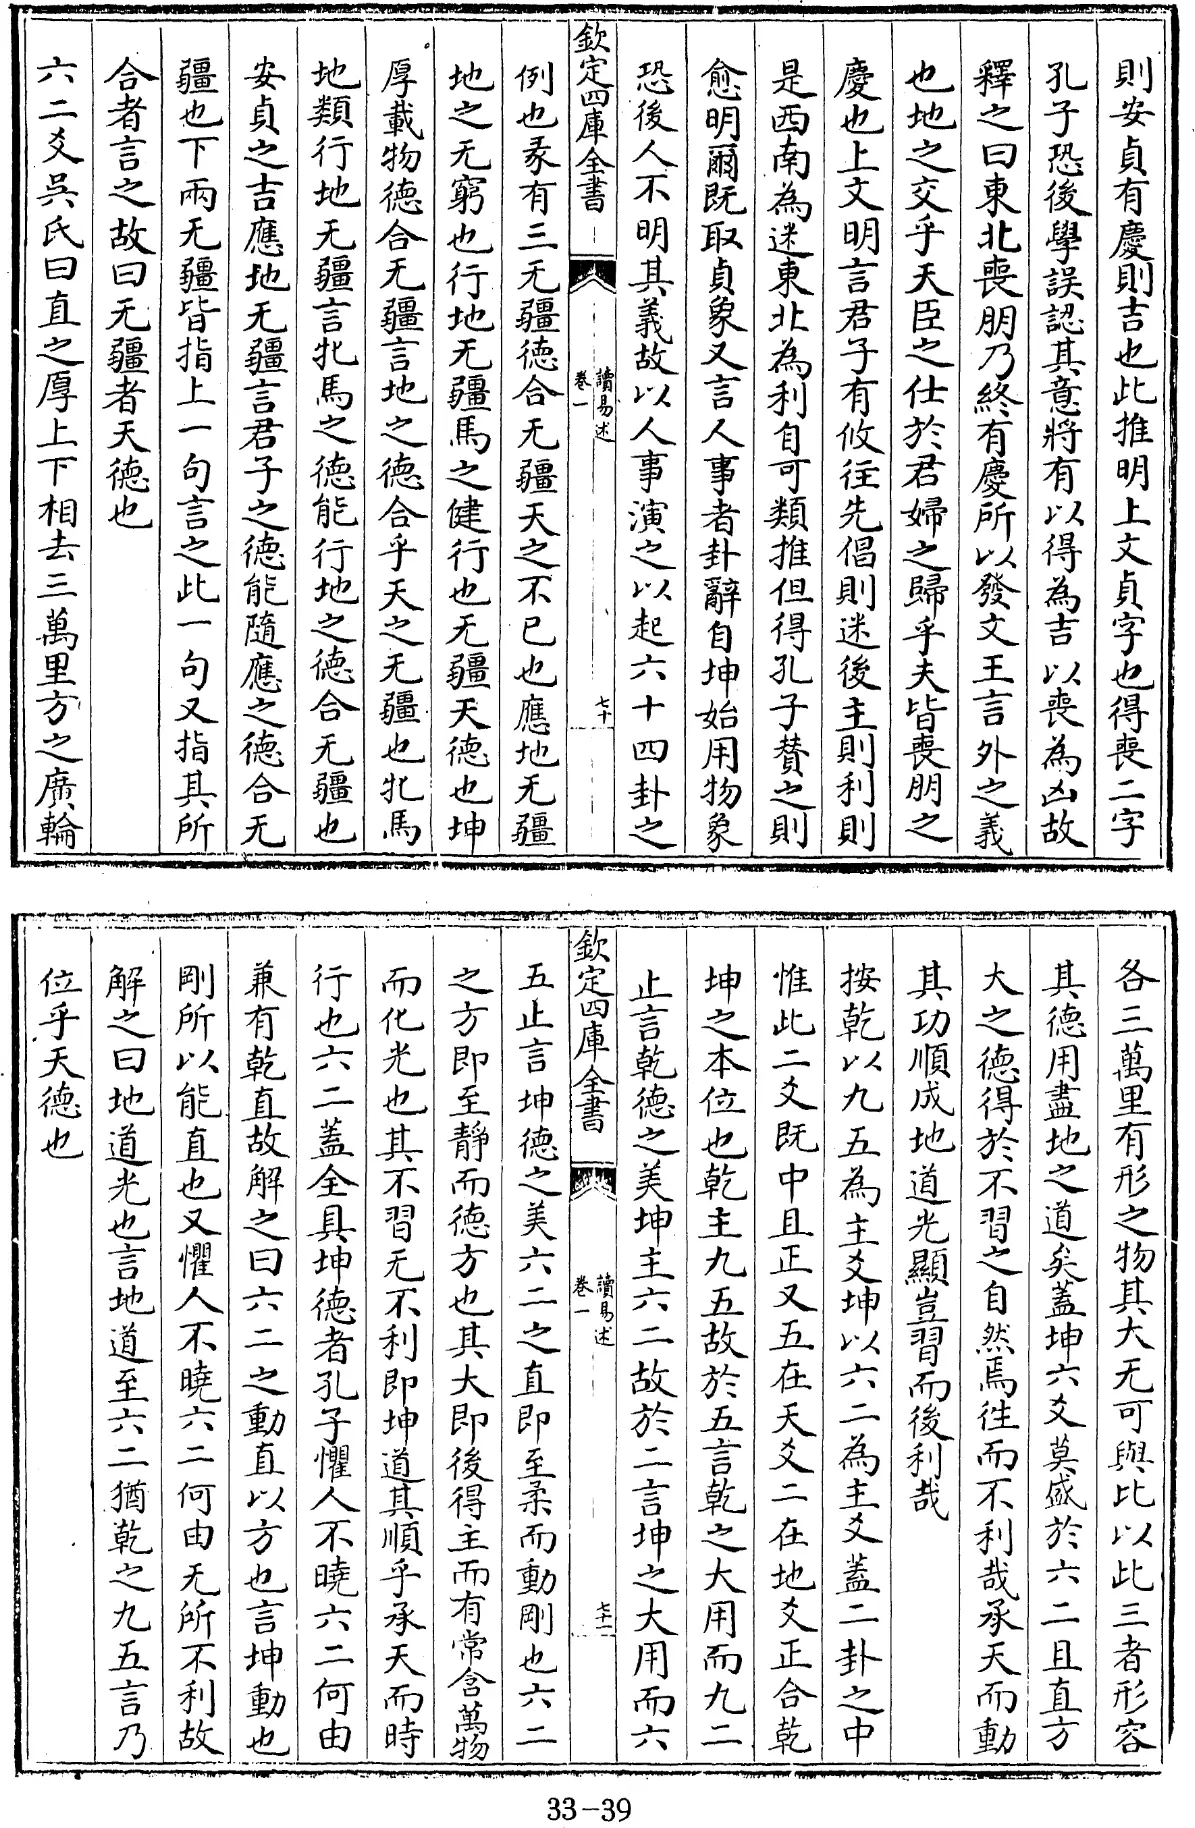 則安貞有慶則吉也此推明上文貞字也得喪二字
孔子恐後學誤認其意將有以得為吉以喪為凶故
釋之曰東北喪朋乃終有慶所以發文王言外之義
也地之交乎天臣之仕於君婦之歸乎夫皆喪朋之
慶也上文明言君子有攸往先倡則迷後主則利則
是西南為迷東北為利自可類推但得孔子贊之則
愈明爾既取貞象又言人事者卦辭自坤始用物象
恐後人不明其義故以人事演之以起六十四卦之
欽定四庫全書
讀易述
卷一
七十
例也彖有三无疆德合无疆天之不已也應地无疆
地之无窮也行地无疆馬之健行也无疆天德也坤
厚載物德合无疆言地之德合乎天之无疆也牝馬
地類行地无疆言牝馬之德能行地之德合无疆也
安貞之吉應地无疆言君子之德能隨應之德合无
疆也下兩无疆皆指上一句言之此一句又指其所
合者言之故曰无疆者天德也
六二爻吳氏曰直之厚上下相去三萬里方之廣輪
各三萬里有形之物其大无可與比以此三者形容
其德用盡地之道矣蓋坤六爻莫盛於六二且直方
大之德得於不習之自然焉往而不利哉承天而動
其功順成地道光顯豈習而後利哉
按乾以九五為主爻坤以六二為主爻蓋二卦之中
惟此二爻既中且正又五在天爻二在地爻正合乾
坤之本位也乾主九五故於五言乾之大用而九二
止言乾德之美坤主六二故於二言坤之大用而六
欽定四庫全書
讀易述
卷一
七十一
五止言坤德之美六二之直即至柔而動剛也六二
之方即至靜而德方也其大即後得主而有常含萬物
而化光也其不習无不利即坤道其順乎承天而時
行也六二蓋全具坤德者孔子懼人不曉六二何由
兼有乾直故解之曰六二之動直以方也言坤動也
剛所以能直也又懼人不曉六二何由无所不利故
解之曰地道光也言地道至六二猶乾之九五言乃
位乎天德也
33-39